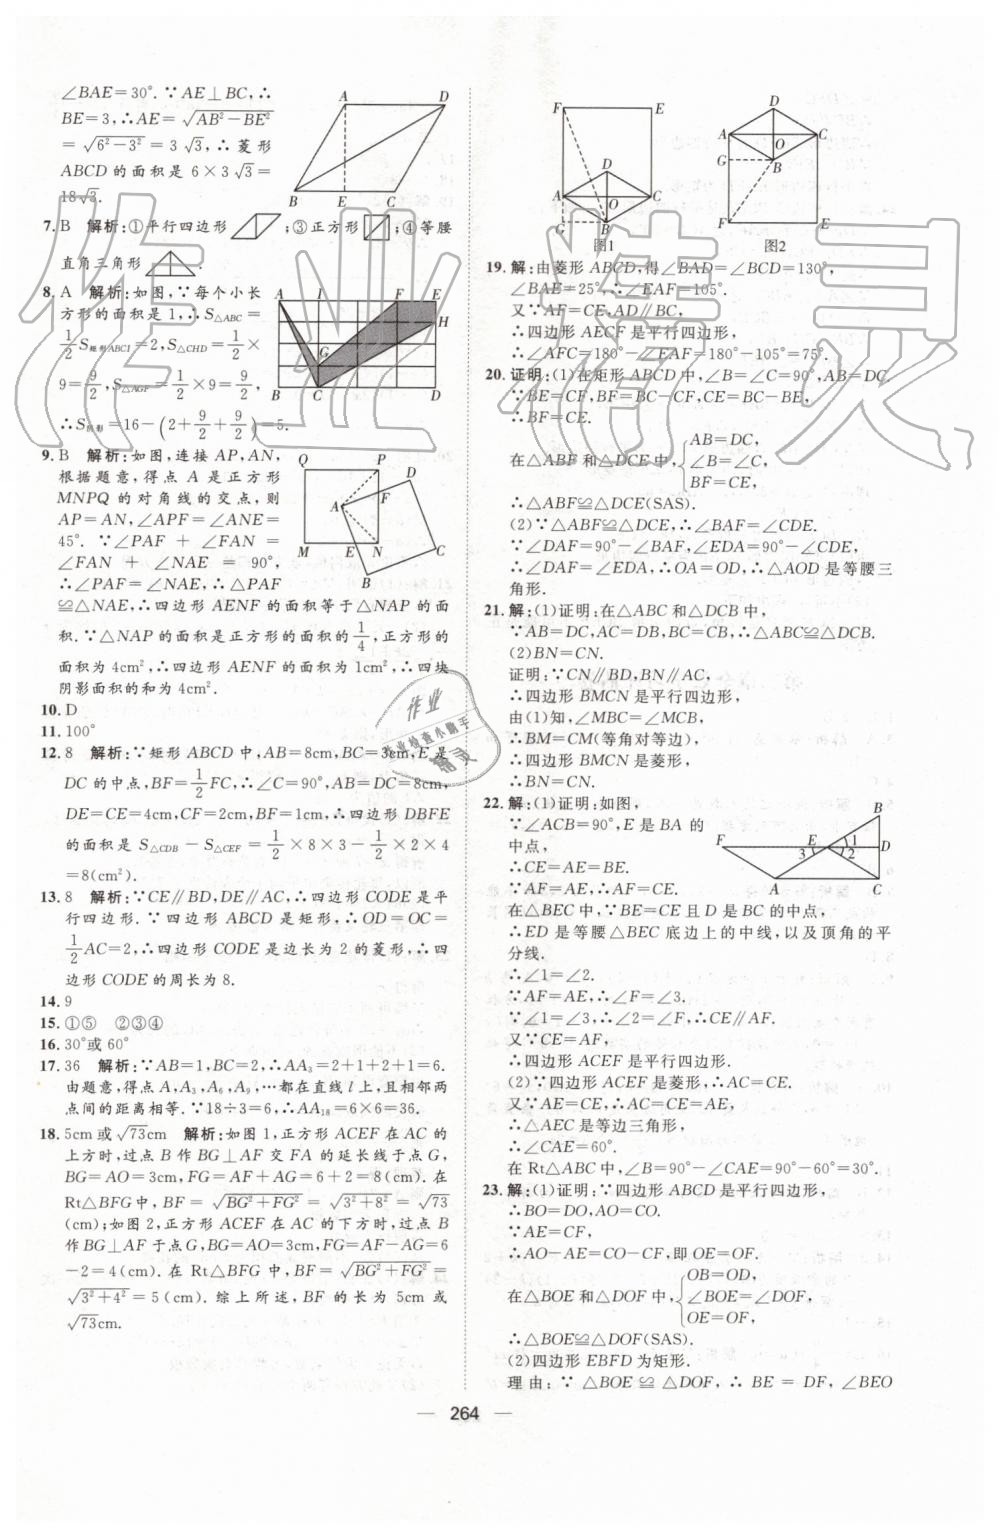 ∠BAE=30°.∵AE⊥BC,∴
BE=3,∴AE=√(AB²-BE²)
=√(6²-3²)=3√3,∴菱形
ABCD的面积是6×3√3=
18√3.
A
D
B
E
C
7.B 解析:①平行四边形;③正方形;④等腰
直角三角形.
8.A 解析:如图,∵每个小长
方形的面积是1,∴S△ABC=
1/2S矩形ABCI=2,S△CHD=1/2×
9=9/2,S△AGF=1/2×9=9/2,
∴S阴影=16-(2+9/2+9/2)=5.
A I F E
H
G
B C D
9.B 解析:如图,连接AP,AN,
根据题意,得点A是正方形
MNPQ的对角线的交点,则
AP=AN,∠APF=∠ANE=
45°.∵∠PAF+∠FAN=
∠FAN+∠NAE=90°,
∴∠PAF=∠NAE,∴△PAF
≌△NAE,∴四边形AENF的面积等于△NAP的面
积.∵△NAP的面积是正方形的面积的1/4,而正方形的
面积为4cm²,∴四边形AENF的面积为1cm²,∴四块
阴影面积的和为4cm².
Q P
D
F
A
M E N
C
B
10.D
11.100°
12.8 解析:∵矩形ABCD中,AB=8cm,BC=3cm,E是
DC的中点,BF=1/2FC,∴∠C=90°,AB=DC=8cm,
DE=CE=4cm,CF=2cm,BF=1cm,∴四边形DBFE
的面积是S△CDB-S△CEF=1/2×8×3-1/2×2×4
=8(cm²).
13.8 解析:∵CE∥BD,DE∥AC,∴四边形CODE是平
行四边形.∵四边形ABCD是矩形,∴OD=OC=
1/2AC=2,∴四边形CODE是边长为2的菱形,∴四
边形CODE的周长为8.
14.9
15.①⑤ ②③④
16.30°或60°
17.36 解析:∵AB=1,BC=2,∴AA₃=2+1+2+1=6.
由题意,得点A,A₃,A₆,A₉,…都在直线l上,且相邻两
点间的距离相等.∵18÷3=6,∴AA₁₈=6×6=36.
18.5cm或√73cm 解析:如图1,正方形ACEF在AC的
上方时,过点B作BG⊥AF交FA的延长线于点G,
BG=AO=3cm,FG=AF+AG=6+2=8(cm).在
Rt△BFG中,BF=√(BG²+FG²)=√(3²+8²)=√73
(cm);如图2,正方形ACEF在AC的下方时,过点B
作BG⊥AF于点G,BG=AO=3cm,FG=AF-AG=6
-2=4(cm).在Rt△BFG中,BF=√(BG²+FG²)=
√(3²+4²)=5(cm).综上所述,BF的长为5cm或
√73cm.
F E
D
A C
O
G B
图1
D
A C
O
G
B
F E
图2
19.解:由菱形ABCD,得∠BAD=∠BCD=130°,
∠BAE=25°,∴∠EAF=105°.
又∵AF=CE,AD∥BC,
∴四边形AECF是平行四边形,
∴∠AFC=180°-∠EAF=180°-105°=75°.
20.证明:(1)在矩形ABCD中,∠B=∠C=90°,AB=DC.
∵BE=CF,BF=BC-CF,CE=BC-BE,
∴BF=CE.
在△ABF和△DCE中,{AB=DC,
∠B=∠C,
BF=CE,
∴△ABF≌△DCE(SAS).
(2)∵△ABF≌△DCE,∴∠BAF=∠CDE.
∵∠DAF=90°-∠BAF,∠EDA=90°-∠CDE,
∴∠DAF=∠EDA,∴OA=OD,∴△AOD是等腰三
角形.
21.解:(1)证明:在△ABC和△DCB中,
∵AB=DC,AC=DB,BC=CB,∴△ABC≌△DCB.
(2)BN=CN.
证明:∵CN∥BD,BN∥AC,
∴四边形BMCN是平行四边形,
由(1)知,∠MBC=∠MCB,
∴BM=CM(等角对等边),
∴四边形BMCN是菱形,
∴BN=CN.
22.解:(1)证明:如图,
∵∠ACB=90°,E是BA的
中点,
∴CE=AE=BE.
∵AF=AE,∴AF=CE.
B
F E 1 D
3 2
A C
在△BEC中,∵BE=CE且D是BC的中点,
∴ED是等腰△BEC底边上的中线,以及顶角的平
分线.
∴∠1=∠2.
∵AF=AE,∴∠F=∠3.
∵∠1=∠3,∴∠2=∠F,∴CE∥AF.
又∵CE=AF,
∴四边形ACEF是平行四边形.
(2)∵四边形ACEF是菱形,∴AC=CE.
又∵AE=CE,∴AC=CE=AE,
∴△AEC是等边三角形,
∴∠CAE=60°.
在Rt△ABC中,∠B=90°-∠CAE=90°-60°=30°.
23.解:(1)证明:∵四边形ABCD是平行四边形,
∴BO=DO,AO=CO.
∵AE=CF,
∴AO-AE=CO-CF,即OE=OF.
在△BOE和△DOF中,{OB=OD,
∠BOE=∠DOF,
OE=OF,
∴△BOE≌△DOF(SAS).
(2)四边形EBFD为矩形.
理由:∵△BOE≌△DOF,∴BE=DF,∠BEO
— 264 —
作业精灵
作业
作业检查小助手
精灵